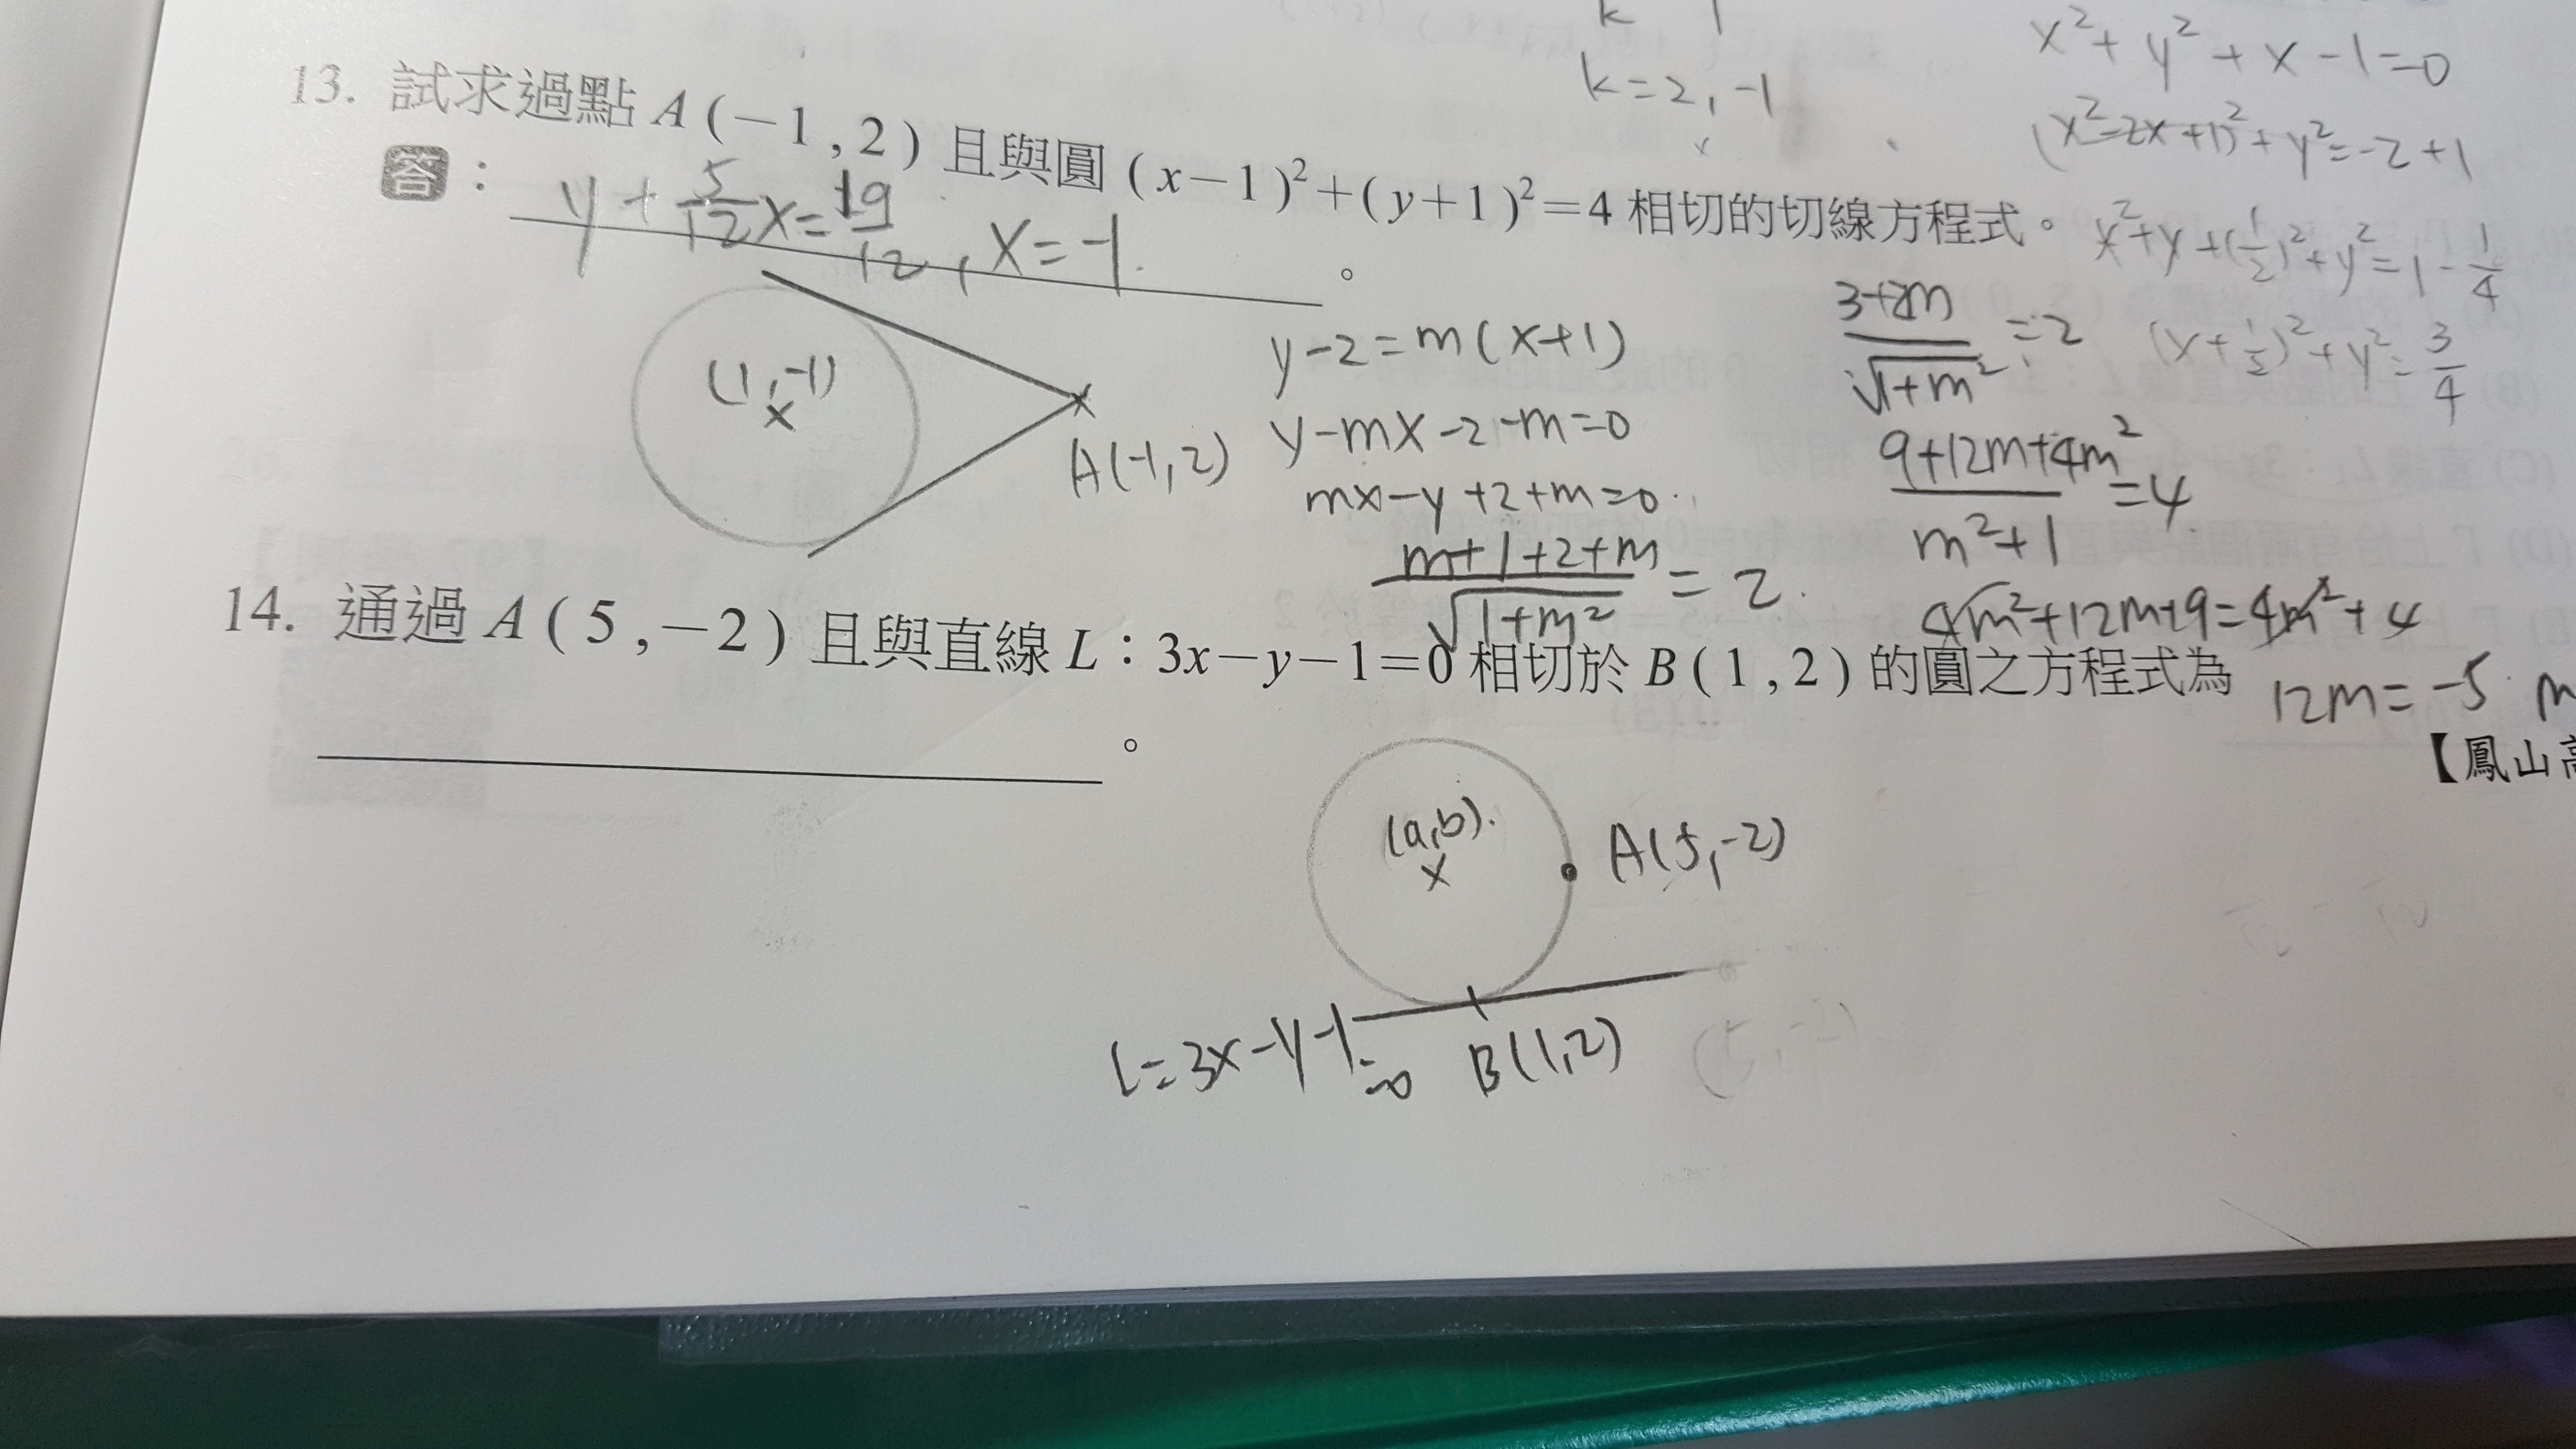 k 1
k=2, -1
x²+y²+x-1=0
(x²-2x+1)²+y²=-2+1
13. 試求過點 A(-1,2) 且與圓 (x-1)²+(y+1)²=4 相切的切線方程式。
答：y+5/12x=19/12, x=-1。
x²+y+(1/2)²+y²=1-1/4
(x+1/2)²+y²=3/4
(1,-1)
A(-1,2)
y-2=m(x+1)
y-mx-2-m=0
mx-y+2+m=0
m+1+2+m/√1+m²=2
3+2m/√1+m²=2
9+12m+4m²/m²+1=4
4m²+12m+9=4m²+4
12m=-5 m
14. 通過 A(5,-2) 且與直線 L：3x-y-1=0 相切於 B(1,2) 的圓之方程式為
。
【鳳山高
(a,b)
A(5,-2)
L=3x-y-1=0
B(1,2)
(5,-2)